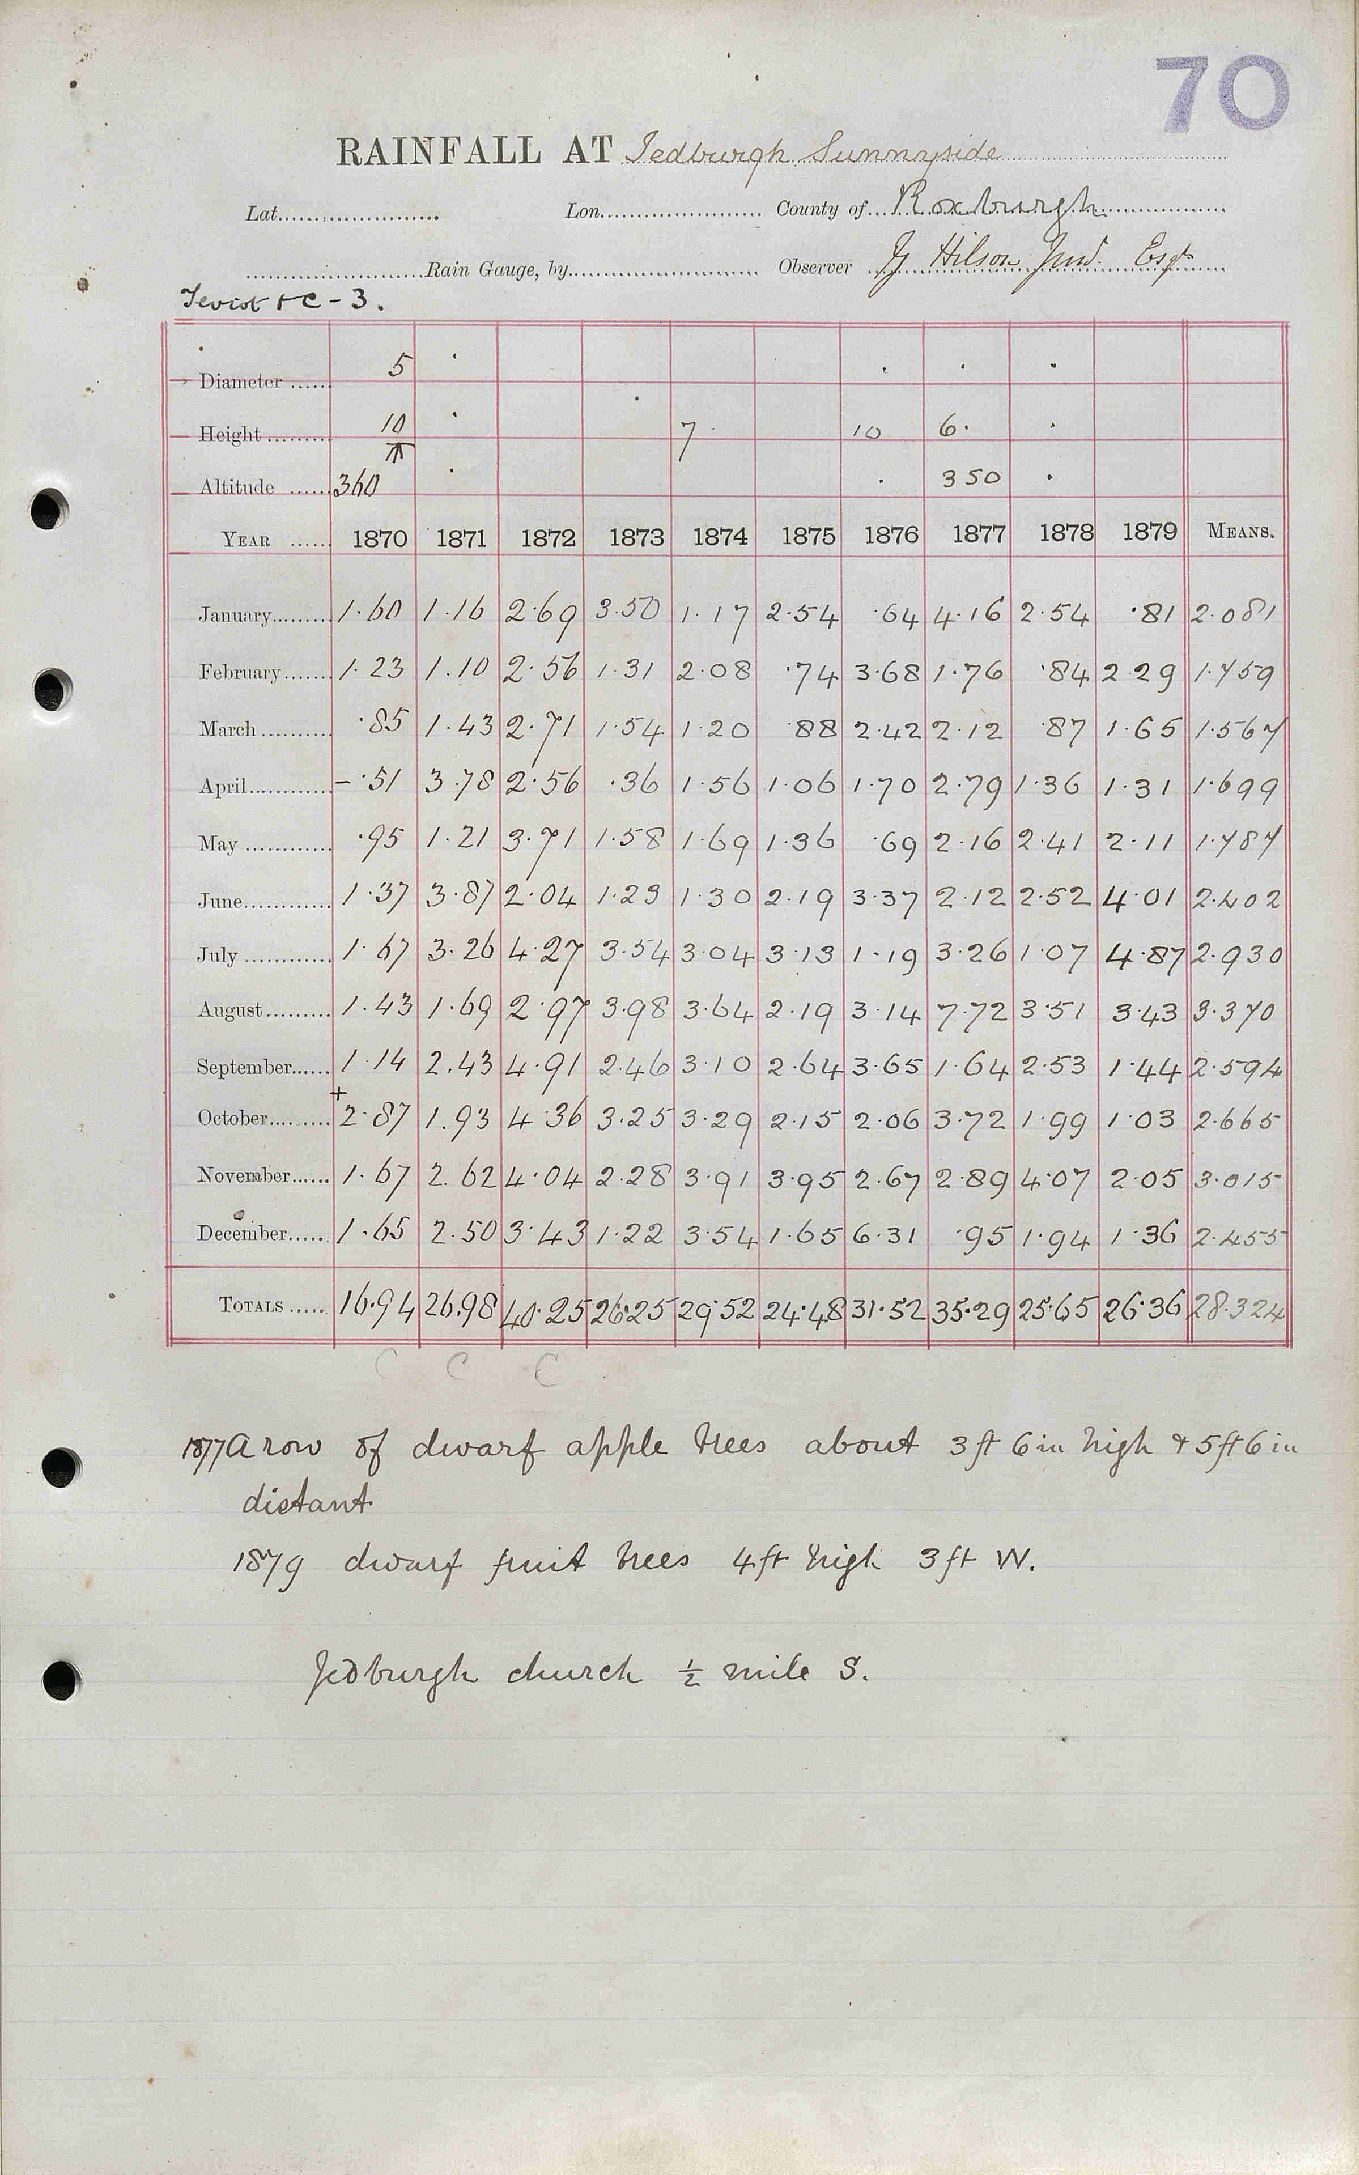 70
RAINFALL AT Jedburgh Sunnyside
Lat. Lon. County of Roxburgh
Rain Gauge, by Observer Hilson Jun. Esq
Teviot &c - 3.
Diameter 5
Height 10 7 10 6
Altitude 360 350
YEAR 1870 1871 1872 1873 1874 1875 1876 1877 1878 1879 MEANS.
January 1.60 1.16 2.69 3.50 1.17 2.54 .64 4.16 2.54 .81 2.081
February 1.23 1.10 2.56 1.31 2.08 .74 3.68 1.76 .84 2.29 1.759
March .85 1.43 2.71 1.54 1.20 .88 2.42 2.12 .87 1.65 1.567
April - .51 3.78 2.56 .36 1.56 1.06 1.70 2.79 1.36 1.31 1.699
May .95 1.21 3.71 1.58 1.69 1.36 .69 2.16 2.41 2.11 1.787
June 1.37 3.87 2.04 1.23 1.30 2.19 3.37 2.12 2.52 4.01 2.402
July 1.67 3.26 4.27 3.54 3.04 3.13 1.19 3.26 1.07 4.87 2.930
August 1.43 1.69 2.97 3.98 3.64 2.19 3.14 7.72 3.51 3.43 3.370
September 1.14 2.43 4.91 2.46 3.10 2.64 3.65 1.64 2.53 1.44 2.594
October + 2.87 1.93 4.36 3.25 3.29 2.15 2.06 3.72 1.99 1.03 2.665
November 1.67 2.62 4.04 2.28 3.91 3.95 2.67 2.89 4.07 2.05 3.015
December 1.65 2.50 3.43 1.22 3.54 1.65 6.31 .95 1.94 1.36 2.455
TOTALS 16.94 26.98 40.25 26.25 29.52 24.48 31.52 35.29 25.65 26.36 28.324
C C C
1877 A row of dwarf apple trees about 3 ft 6 in high & 5 ft 6 in
distant
1879 dwarf fruit trees 4 ft high 3 ft W.
Jedburgh church ½ mile S.